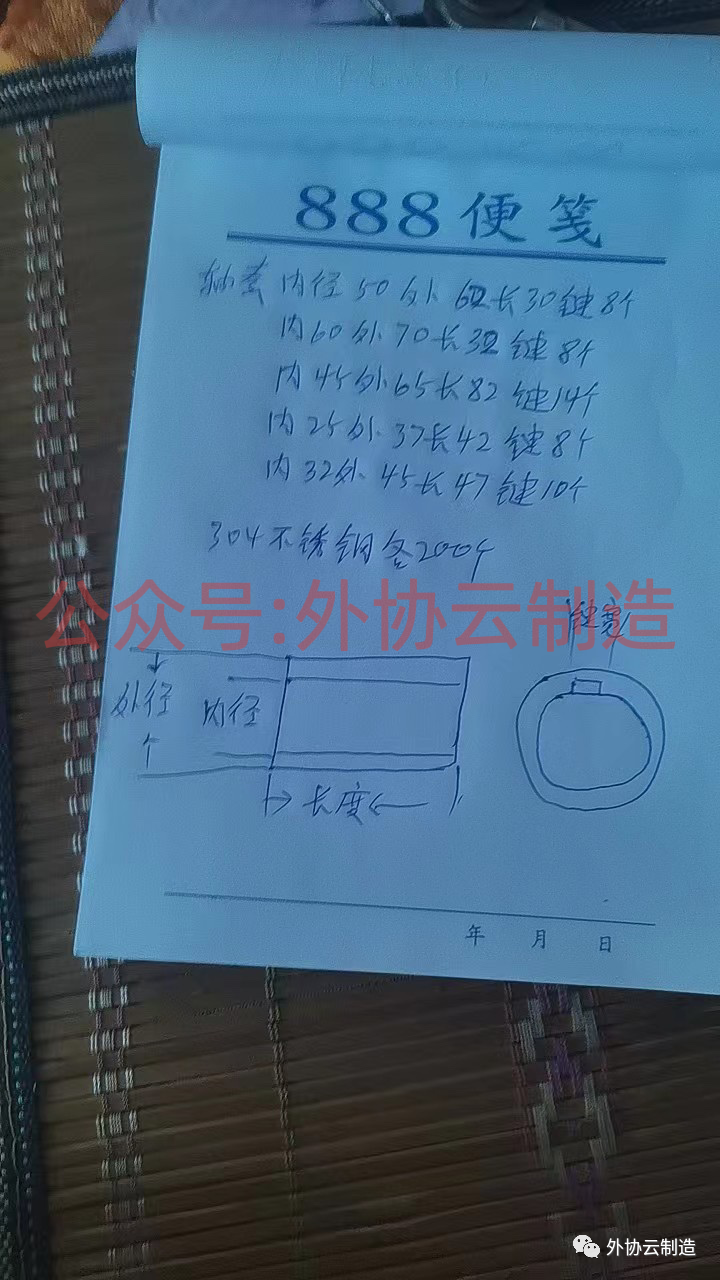 888便笺
轴套 内径50外62长30键8个
内60外70长32键8个
内45外65长82键14个
内25外37长42键8个
内32外45长47键10个
304不锈钢各200个
公众号:外协云制造
键宽
外径
内径
长度
年 月 日
外协云制造